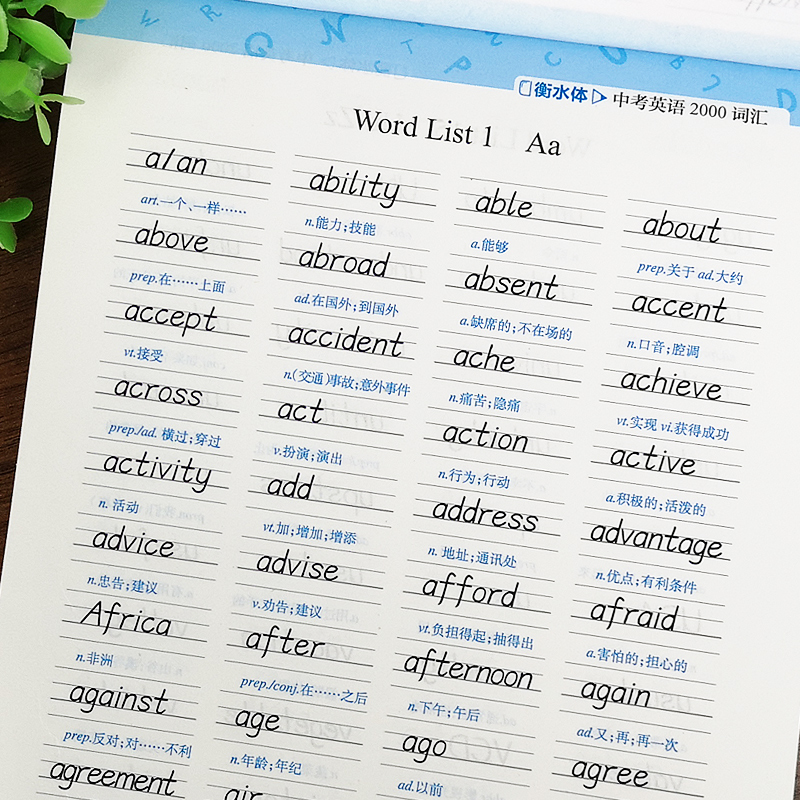 衡水体 中考英语 2000 词汇
Word List 1 Aa
a/an ability able about
art.一个、一样…… n.能力;技能 a.能够 prep.关于 ad.大约
above abroad absent accent
prep.在……上面 ad.在国外;到国外 a.缺席的;不在场的 n.口音;腔调
accept accident ache achieve
vt.接受 n.(交通)事故;意外事件 n.痛苦;隐痛 vt.实现 vi.获得成功
across act action active
prep./ad. 横过;穿过 v.扮演;演出 n.行为;行动 a.积极的;活泼的
activity add address advantage
n. 活动 vt.加;增加;增添 n. 地址;通讯处 n.优点;有利条件
advice advise afford afraid
n.忠告;建议 v.劝告;建议 vt.负担得起;抽得出 a.害怕的;担心的
Africa after afternoon again
n.非洲 prep./conj.在……之后 n.下午;午后 ad.又;再;再一次
against age ago agree
prep.反对;对……不利 n.年龄;年纪 ad.以前
agreement air